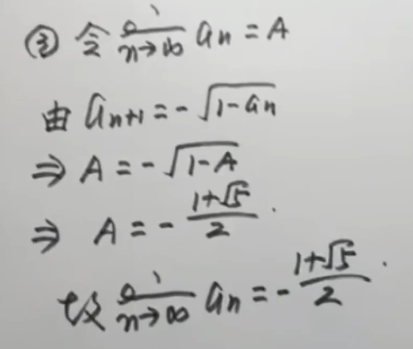 ③ 令 lim_{n→∞} aₙ = A
由 aₙ₊₁ = -√(1-aₙ)
⇒ A = -√(1-A)
⇒ A = - (1+√5)/2 .
故 lim_{n→∞} aₙ = - (1+√5)/2 .